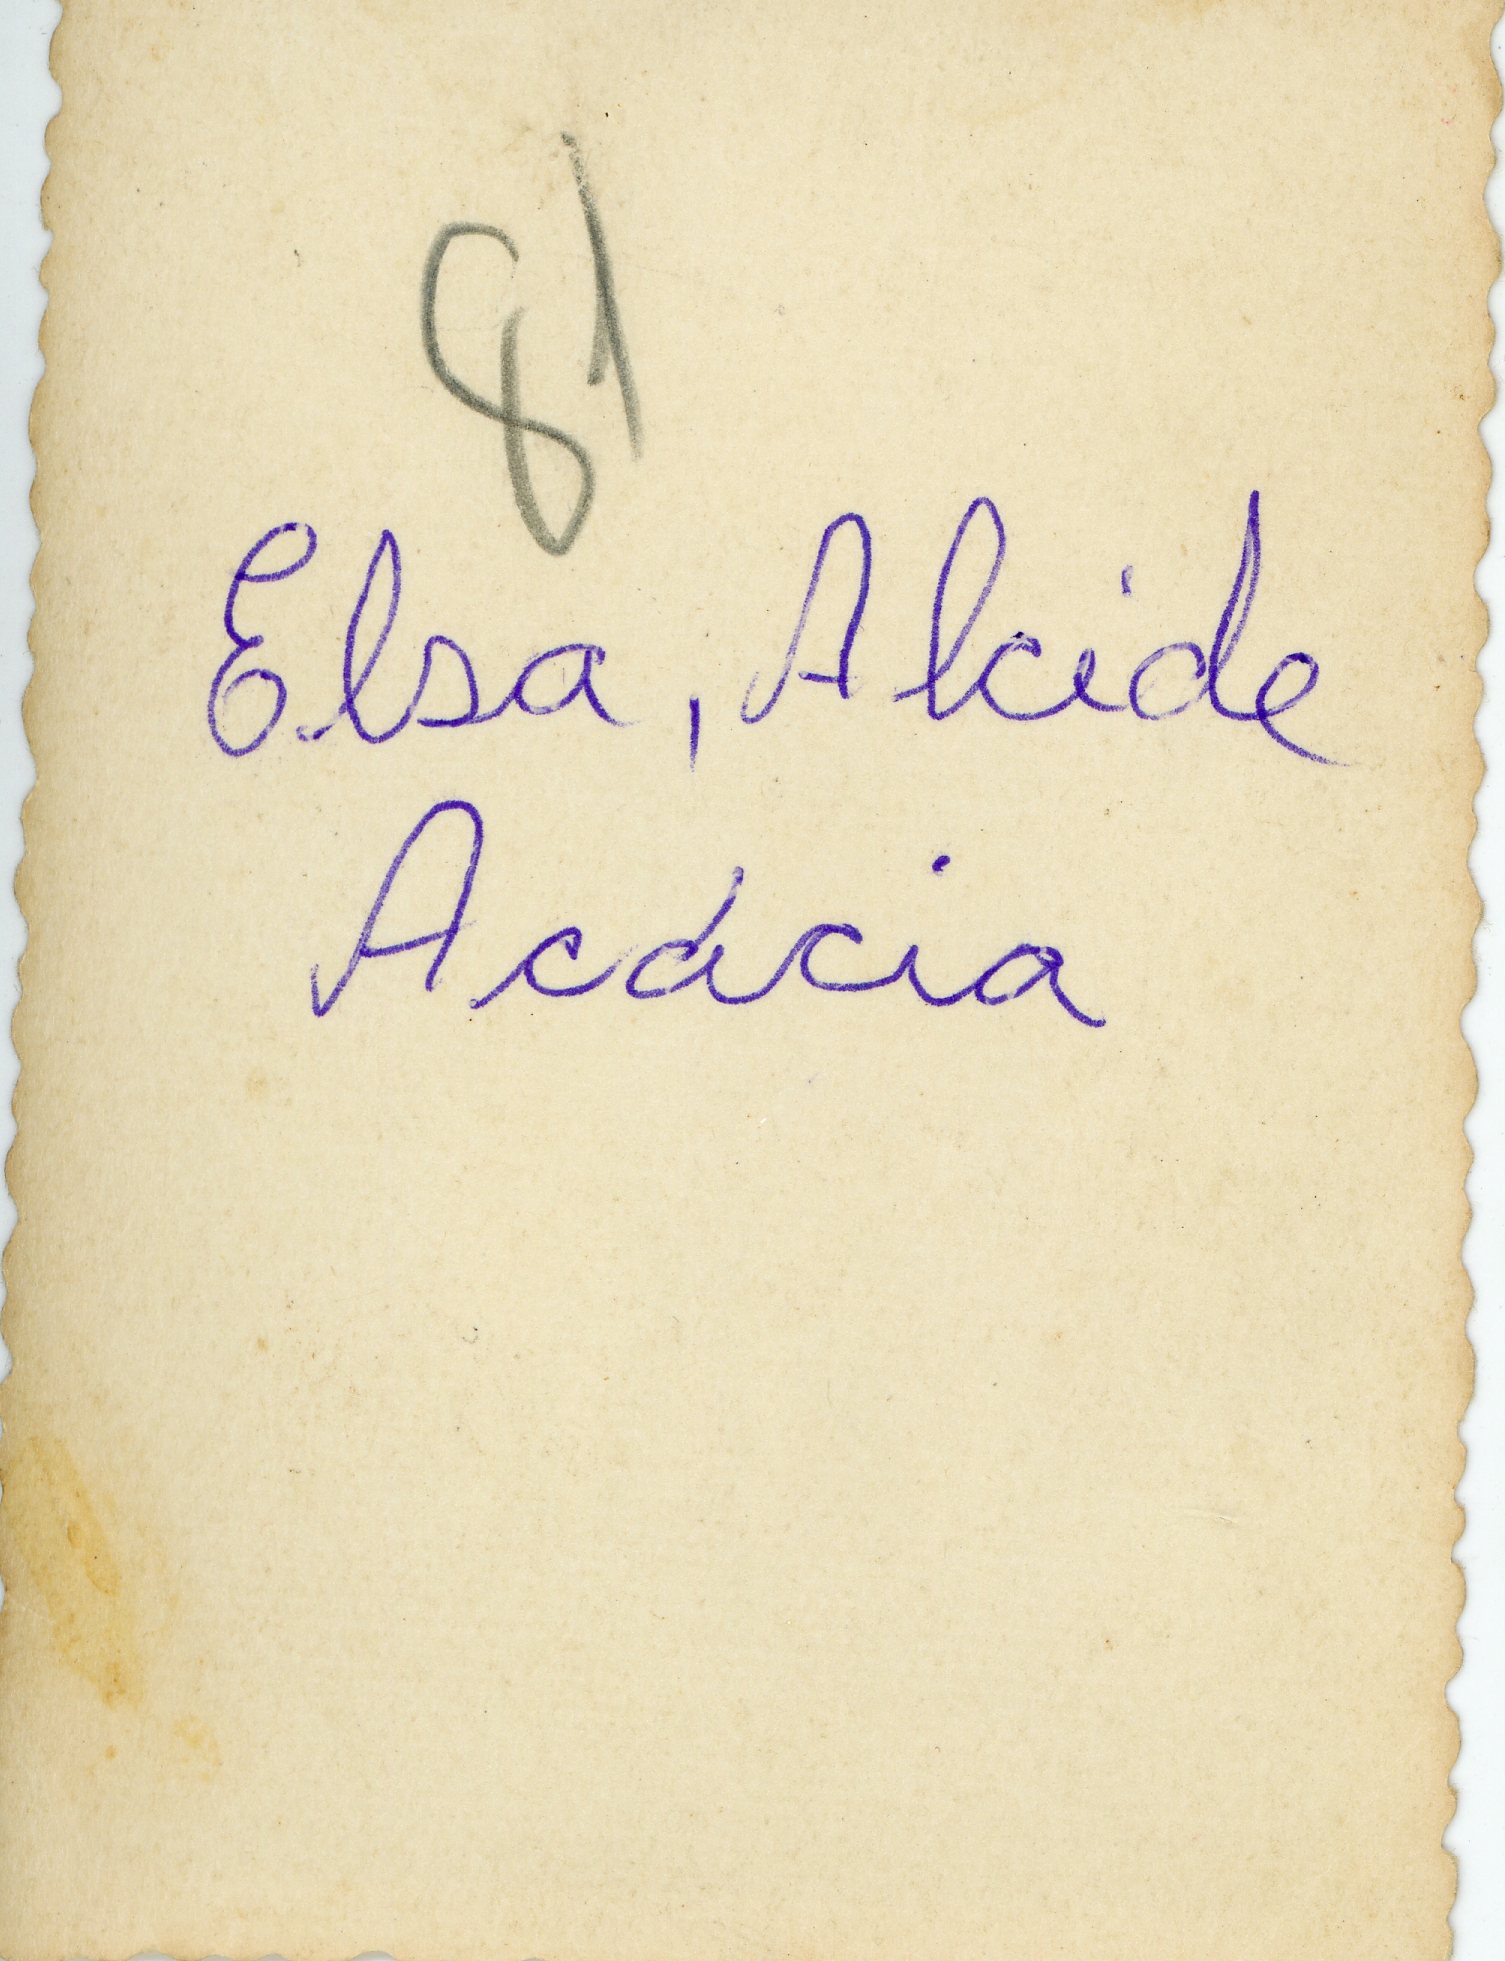 81
Elsa, Alcide
Acácia